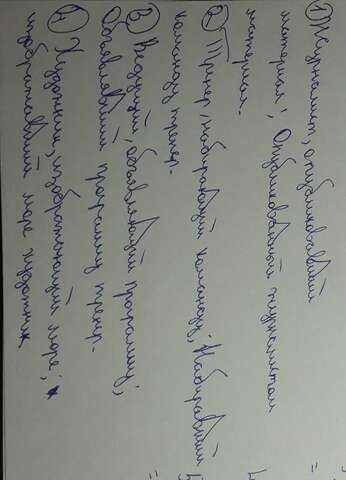 ① Журналист, опубликовавший
материал; Опубликованный журналистом
материал.
② Тренер, набирающий команду; Набиравший
команду тренер.
③ Ведущий, объявляющий программу;
Объявлявший программу тренер.
④ Художник, изображающий море;
изображавший море художник